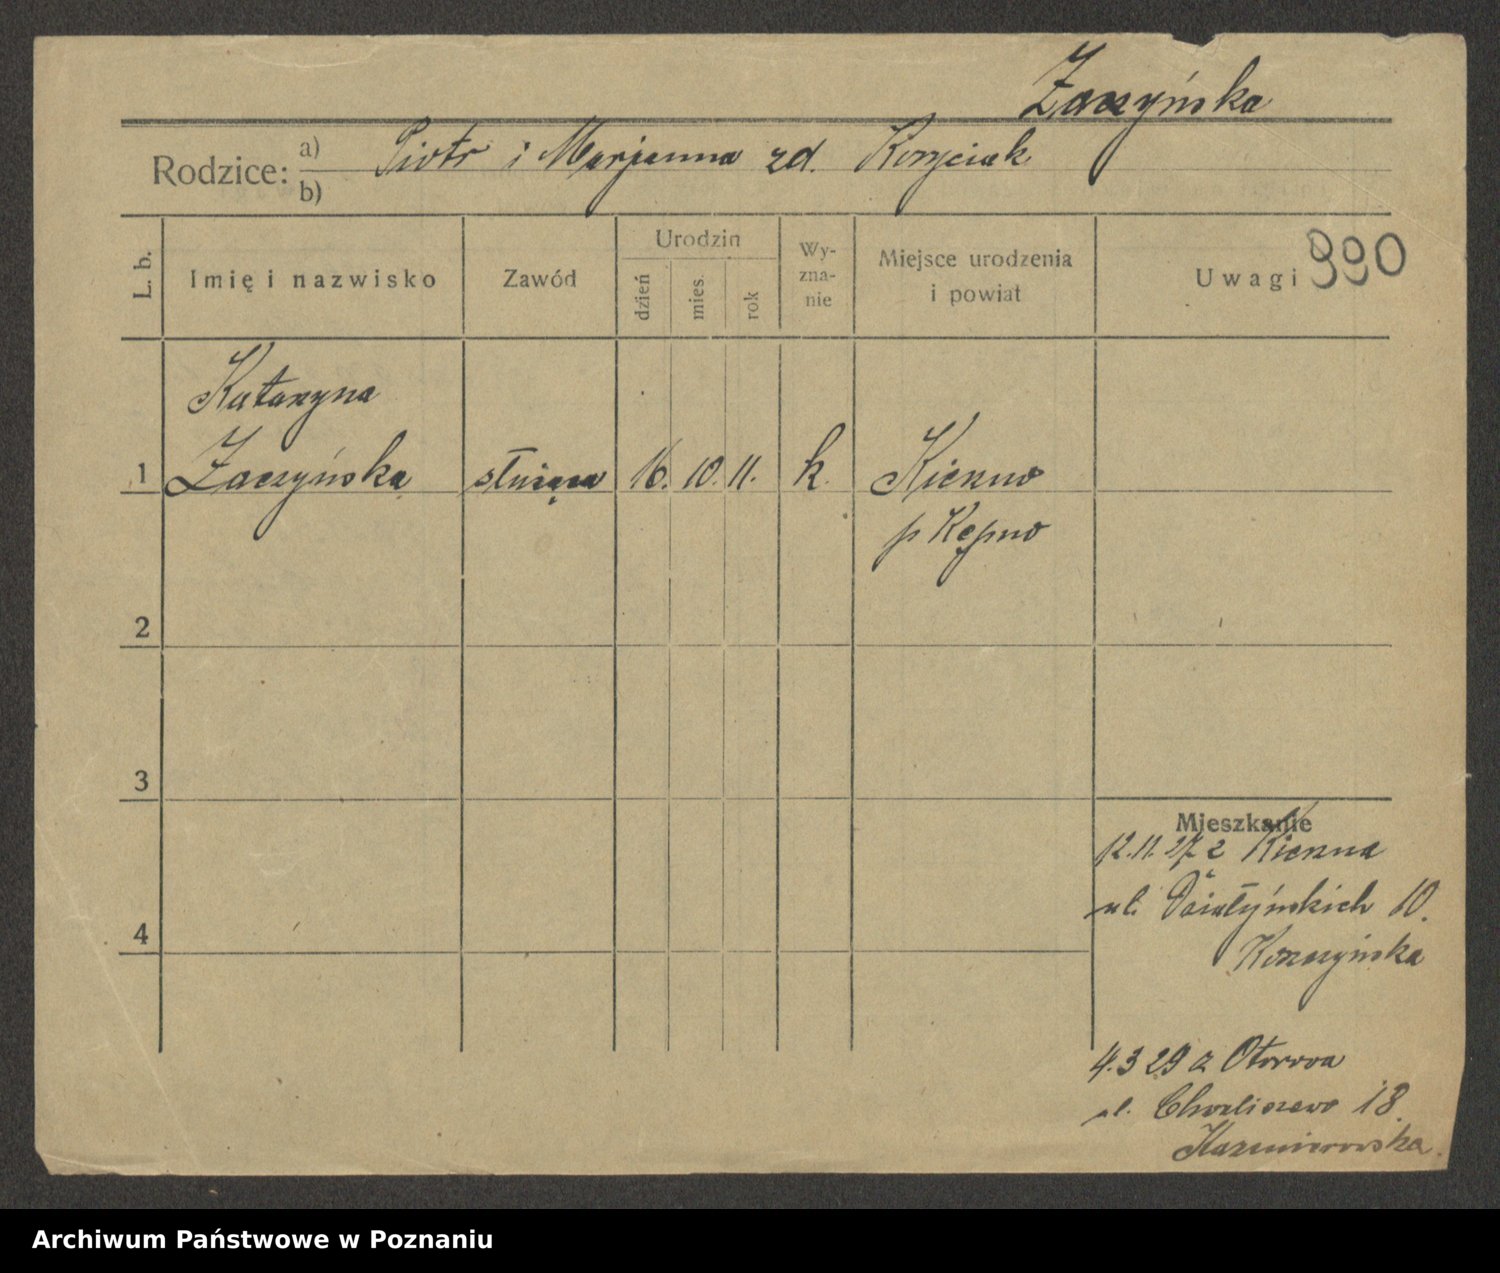 Zaczyńska
Rodzice: a) Piotr i Marjanna zd.
b)
L. b.
Imię i nazwisko
Zawód
Urodzin
dzień
mies.
rok
Wy-
zna-
nie
Miejsce urodzenia
i powiat
Uwagi
990
Katarzyna
1 Zaczyńska służąca 16. 10. 11. k. Kierzno
p Kępno
2
3
Mieszkanie
12.11.27 z Kierzna
ul. Działyńskich 10.
4
4.3 29 z Otorowa
ul. Chwaliszewo 18
Kazmierowska
Archiwum Państwowe w Poznaniu